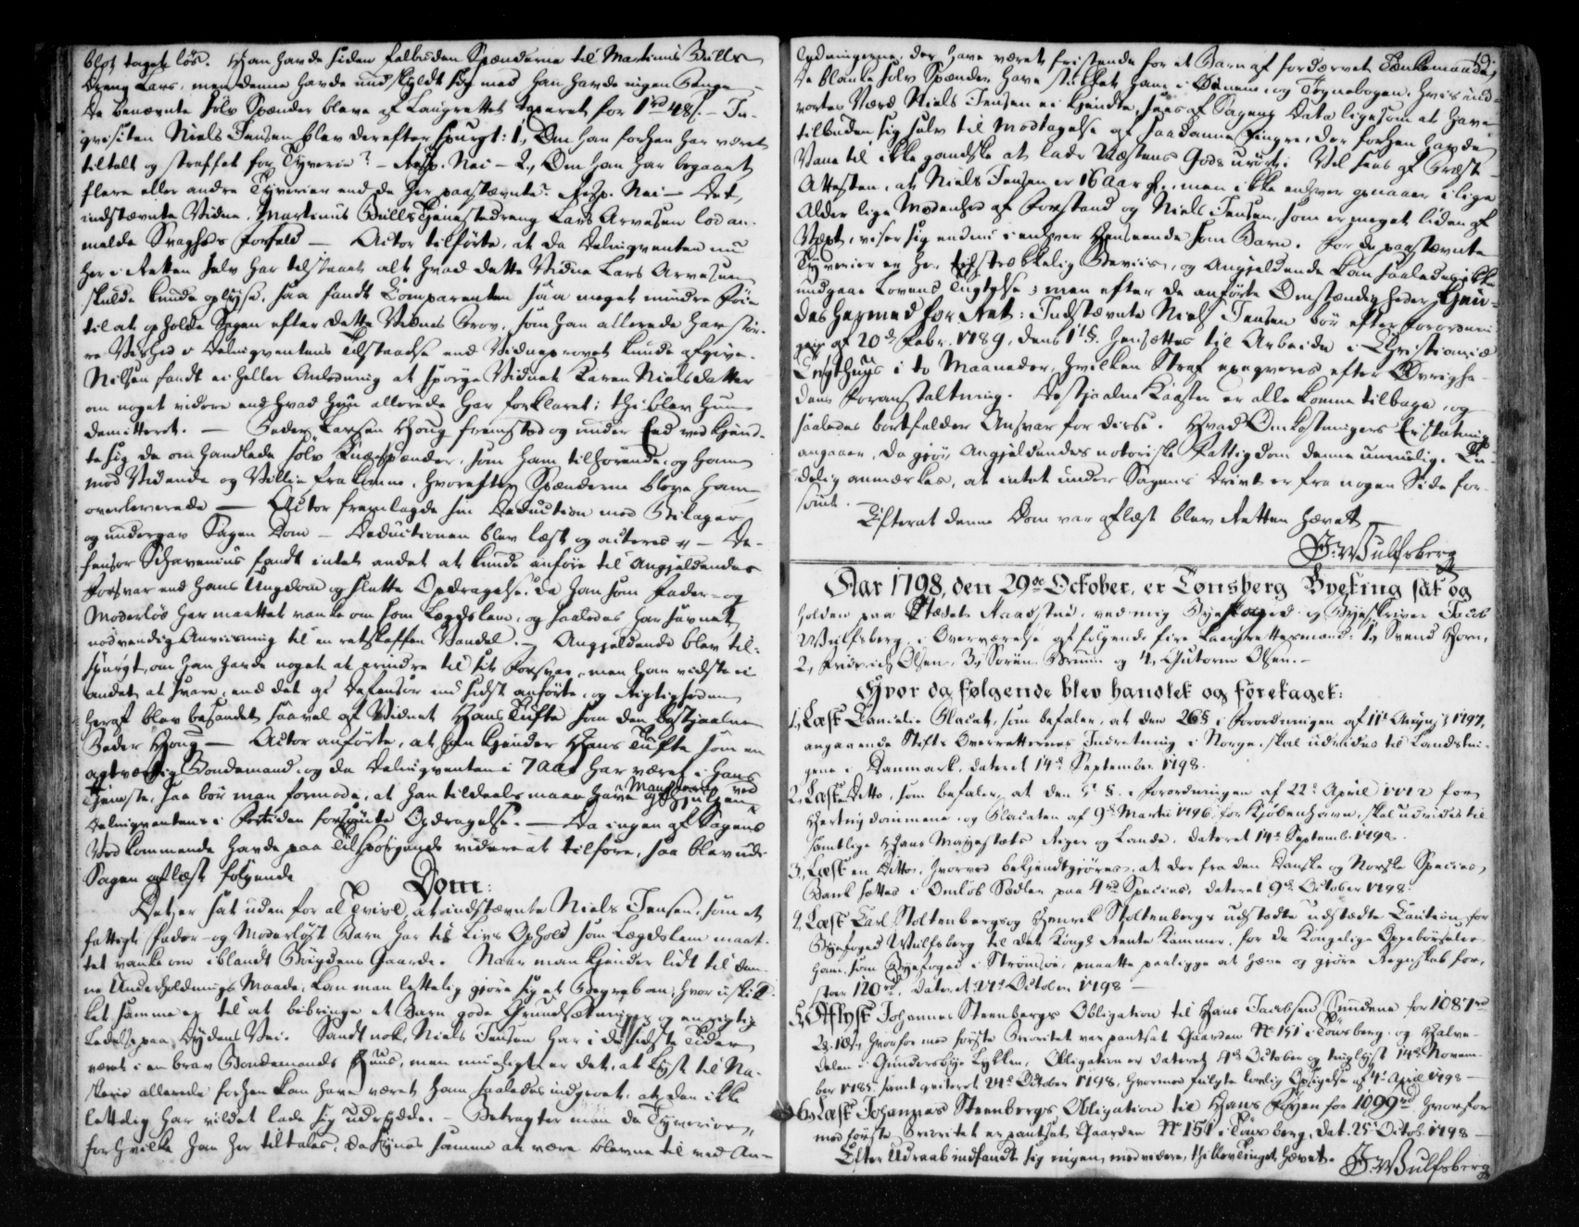 blot taget løs. Han havde siden falbuden Spænderne til Martinus Bulls
Dreng Lars, men denne havde undskyldt sig med han havde ingen Penge
De benævnte sølv Spænder bleve af Laugrettet taxeret for 1 rd 48 s. – In-
qvisiten Niels Jensen blev derefter spurgt: 1, Om han forhen har været
tiltalt og straffet for Tyverie? – Resp. Nei – 2, Om han har begaaet
flere eller andre Tyverier end de her paastævnte? Resp. Nei – Det,
indstævnte Vidne, Martinus Bulls Tjenestedreng Lars Arvesen lod an-
melde Svagheds Forfald – Actor tilførte, at da Delinqventen nu
her i Retten selv har tilstaaet alt hvad dette Vidne Lars Arvesen
skulde kunde oplyse, saa fandt Comparenten saa meget mindre Føie
til at opholde Sagen efter dette Vidnes Prov, som han allerede har stør-
re Vished i Delinqventens Tilstaaelse end Vidneprovet kunde afgive.
Nilsen fandt ei heller Anledning at spørge Vidnet Karen Nielsdatter
om noget videre end hvad hun allerede har forklaret; thi blev hun
demitteret. – Peder Larsen Houg fremstod og under Eed vedkjend-
te sig de omhandlede sølv Knæspænder, som ham tilhørende, og ham
mod Vidende og Villie frakomne, hvorefter Spænderne bleve ham
overleverede – Actor fremlagde sin Deduction med Bilager
og undergav Sagen Dom – Deductionen blev læst og acteres – De-
fensor Schavenius fandt intet andet at kunde anføre til Angjeldendes
Forsvar end hans Ungdom og slette Opdragelse, da han som Fader- og
Moderløs har maattet vanke om som Lægdslem, og saaledes har savnet
nødvendig Anviisning til en retskaffen Vandel. – Angjeldende blev til-
spurgt, om han havde noget at erindre til sit Forsvar, men han vidste ei
andet at svare, end det af Defensor nu sidst anførte, og Rigtigheden
heraf blev besandet saavel af Vidnet Hans Tufte som den bestjaalne
Peder Houg – Actor anførte, at han kjender Hans Tufte som en
agtværdig Bondemand, og da Delinqventen i 7 Aar har været i hans
Tjeneste, saa bør man formode, at han tildeels maae have afhjulpen
Delinqventens i Fortiden forsømte Opdragelse. – Da ingen af Sagens
Vedkommende havde paa Tilspørgende videre at tilføre, saa blev udi
Sagen aflæst følgende
Dom:
Det er sat uden for al Tvivl, at indstævnte Niels Jensen, som et
fattigt Fader- og Moderløst Barn har til Livs Ophold som Lægdslem maat-
tet vanke om iblandt Bøygdens Gaarde. Naar man kjender lidt til den-
ne Underholdnings Maade, kan man lettelig gjøre sig et Begreb om, hvor uskik-
ket samme er til at bibringe et Barn gode Grundsætninger og en rigtig
Ledelse paa Dydens Vei. Sandt nok, Niels Jensen har i de sidste Tider
været i en brav Bondemands Huus, men mueligt er det, at Lyst til Ra-
perie allerede forhen kan have været ham saaledes indgroet, at den ikke
lettelig har villet lade sig udrydde. – Betragter man de Tyverier,
for hvilke han her tiltales, da synes samme at være blevne til ved An-
lydningerne, der have været fristende for et Barn af fordærvet Tænkemaade.
De blanke sølv Spænder have stukket ham i Øinene, og Tegnebogen, hvis ind-
vortes Værd Niels Jensen ei kjendte, sees af Sagens Data ligesom at have
tilbuden sig selv til Modtagelse af saadanne Fingre, der forhen havde
Vane til ikke gandske at lade Næstens Gods urørt. Vel sees af Præste
Attesten, at Niels Jensen er 16 Aar gl., men ikke enhver gemeen i lige
Alder lige Modenhed af Forstand og Niels Jensen, som er meget liden af
Vext, viser sig endnu i enhver Henseende som Barn. For de paastævnte
Tyverier er her tilstrækkelig Beviis, og Angjeldende kan saaledes ikke
undgaae Lovens Tugtelse; men efter de anførte Omstændigheder kjen-
des hermed for Ret: Indstævnte Niels Jensen bør efter Forordnin-
gen af 20de Febr. 1789, dens 1ste §. hensættes til Arbeide i Christiania
Tugthuus i to Maaneder, hvilken Straf exeqveres efter Øvrighe-
dens Foranstaltning. De stjaalne Kaaster er alle komne tilbage, og
saaledes bortfalder Ansvar for disse. Hvad Omkostningers Erstatning
angaaer, da gjør Angjeldendes notoriske Fattigdom denne umuelig. En-
delig anmærkes, at intet under Sagens Drivt er fra nogen Side for-
sømt.
Efterat denne Dom var aflæst blev Retten hævet
J. Wulfsberg
Aar 1798, den 29de October, er Tønsberg Byeting sat og
holden paa Stædets Raadstue, ved mig Byefoged og Byeskriver Jacob
Wulfsberg, i Overværelse af følgende fire Laugrettesmænd: 1, Svend Horn,
2, Friderich Olsen, 3, Søren Bruun og 4, Guttorm Olsen. –
Hvor da følgende blev handlet og foretaget:
1, Læst Cancelie Placat, som befaler, at den 26 § i Forordningen af 11te August 1797,
angaaende Stifts Overretternes Indretning i Norge, skal udvides til Landstin-
gene i Danmark, dateret 14de September 1798.
2, Læst Ditto, som befaler, at den 5 §. i Forordningen af 22de April for
Hertugdommene og Placaten af 9de Martii 1796, for Kjøbenhavn, skal udvides til
samtlige Hans Majestæts Riger og Lande, dateret 14de Septemb. 1798.
3, Læst en Ditto, hvorved bekjendtgjøres, at der fra den Danske og Norske Species
Bank sættes i Omløb Sedler paa 4 rd Species, dateret 9de October 1798.
4, Læst Carl Stoltenbergs og Henrik Stoltenbergs udstedte udstædte Caution for
Byefoged Wulfsberg til det Kongl. Rente Kammer, for de Kongelige Oppebørseler
ham, som Byefoged i Strømsøe, maatte paaligge at hæve og gjøre Regnskab for,
stor 120 rd, dateret October 1798 –
5, Aflyst Johannes Steenbergs Obligation til Hans Jacobsen for 1087 rd
hvorfor med første Prioritet var pantsat Gaarden No 151 i Tønsberg og Halve-
delen i Løkken, Obligationen er dateret 4de October og tinglyst 14de Novem-
ber 1785, samt qviteret 24de October 1798, hvormed fulgte lovlig Opsigelse af 4de April 1798 –
6, Læst Johannes Steenbergs Obligation til Hans Føyen for 1099 rd hvorfor
med første Prioritet er pantsat Gaarden No 151 i Tønsberg, dat. 25de Octob. 1798 –
Efter Udraab indfandt sig ingen med videre, thi blev Tinget hævet. J. Wulfsberg